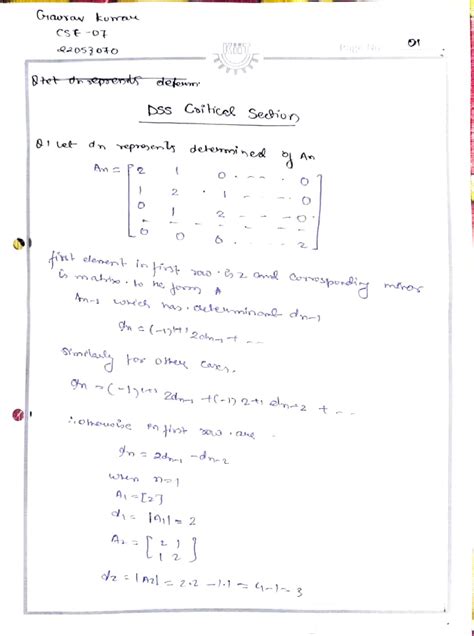 Gaurav Kumar
CSE-07
22053070
KIIT
Page No
01
DSS Critical Section
Q1 Let dn represents determined of An
An = [ 2 1 0 . - - . 0
1 2 . 1 - - . 0
0 1 2 - - - 0
- - - - - - -
0 0 0 . . . - 2 ]
first element in first row . is 2 and corresponding minor
is matrix . to he form A
An-1 which has . determinant dn-1
dn = (-1)1+1 2dn-1 + - -
Similarly for other cases.
dn = (-1)1+1 2dn-1 + (-1) 2+1 dn-2 + - -
∴ otherwise in first row . are .
dn = 2dn-1 - dn-2
when n=1
A1 = [2]
d1 = |A1| = 2
A2 = [ 2 1
1 2 ]
d2 = |A2| = 2.2 - 1.1 = 4-1 = 3